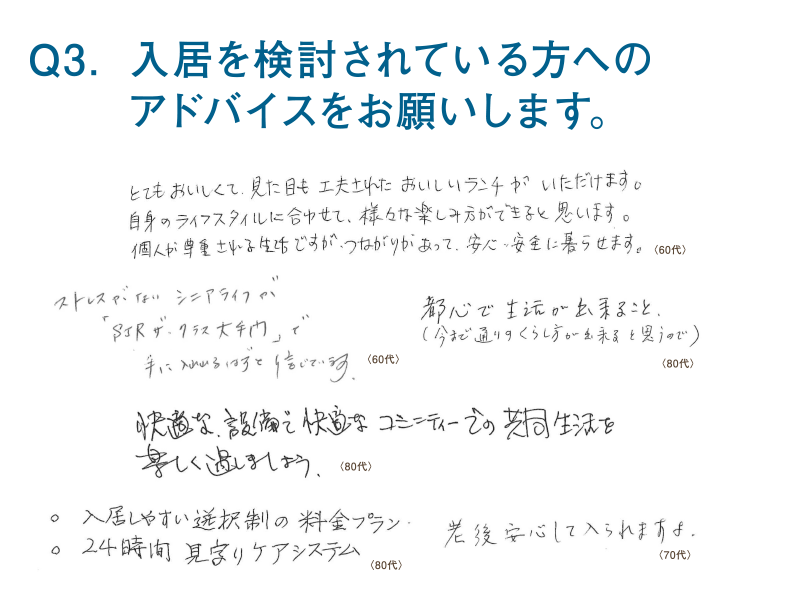 Q3. 入居を検討されている方への
アドバイスをお願いします。
とてもおいしくて、見た目も工夫された おいしいランチが いただけます。
自身のライフスタイルに合わせて、様々な楽しみ方ができると思います。
個人が尊重される生活ですが、つながりがあって、安心・安全に暮らせます。(60代)
ストレスがない シニアライフが
「SJR ザ・クラス大手門」で
手に入れれるはずと 信じています。(60代)
都心で生活が出来ること、
(今まで通りのくらし方が出来ると思うので)
(80代)
快適な、設備で快適な コミニティーでの 共同生活を
楽しく過しましょう、(80代)
○ 入居しやすい選択制の料金プラン
○ 24時間 見守りケアシステム
(80代)
老後安心して入られますよ。
(70代)